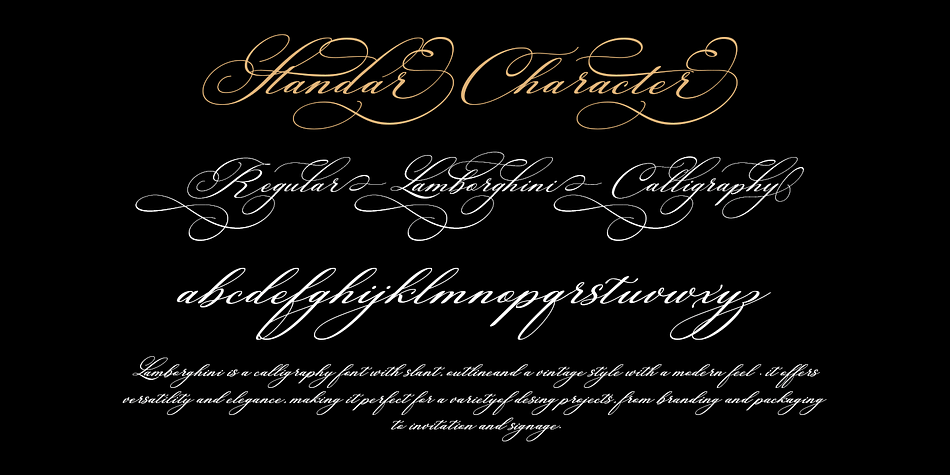 Standar Character
Regular Lamborghini Calligraphy
abcdefghijklmnopqrstuvwxyz
Lamborghini is a calligraphy font with slant, outlineand a vintage style with a modern feel . it offers
versatility and elegance, making it perfect for a varietyof desing projects, from branding and packaging
to invitation and signage.